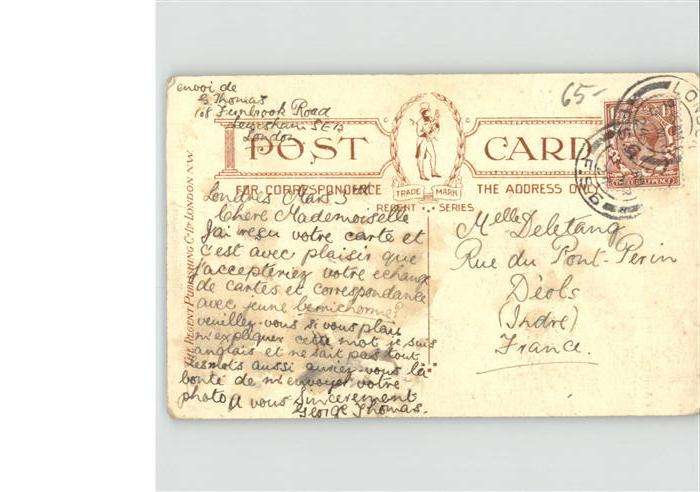 envoi de
G Thomas
108 Road
Lewisham SE13
London
65-
POST CARD
FOR CORRESPONDENCE
THE ADDRESS ONLY
TRADE MARK
REGENT SERIES
THE REGENT PUBLISHING Co Ld LONDON N.W.
Londres Mars 3rd
Chere Mademoiselle
J'ai reçu votre carte et
c'est avec plaisir que
j'accepteriez votre echange
de cartes et correspondance
avec jeune bernichonne?
veuillez-vous si vous plait
m'expliquer cette mot je suis
anglais et ne sait pas tout
les mots aussi auriez-vous la
bonté de m'envoyer votre
photo A vous Sincerement
George Thomas.
Melle Deletang
Rue du Pont-Perin
Dèols
(Indre)
France.